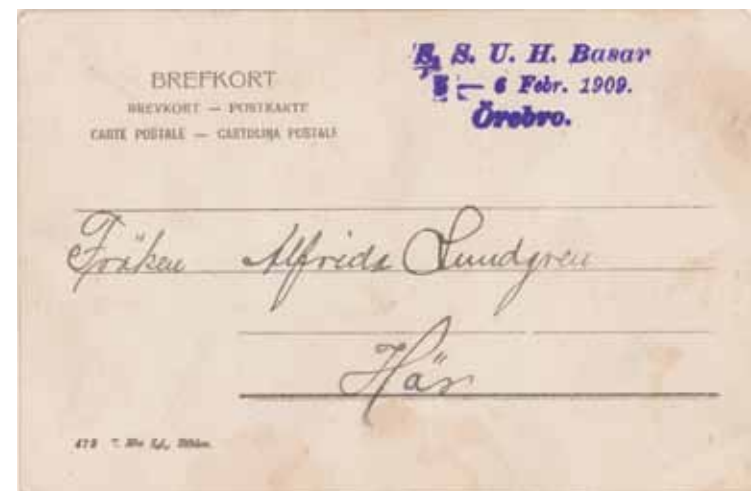 BREFKORT
BREVKORT — POSTKARTE
CARTE POSTALE — CARTOLINA POSTALE
S. S. U. H. Basar
5 — 6 Febr. 1909.
Örebro.
Fröken Alfrida Lundgren
Här